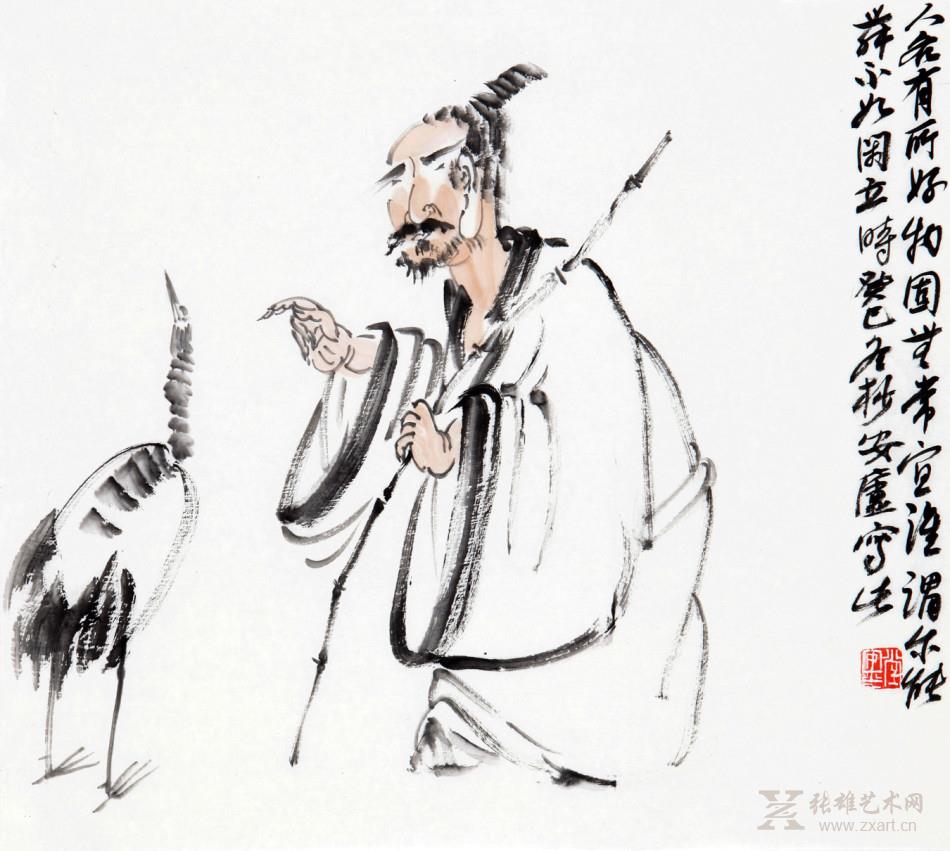 人各有所好物固無常宜誰謂尔能
舞不如閑立時癸巳冬杪安廬寫
張雄艺术网
www.zxart.cn